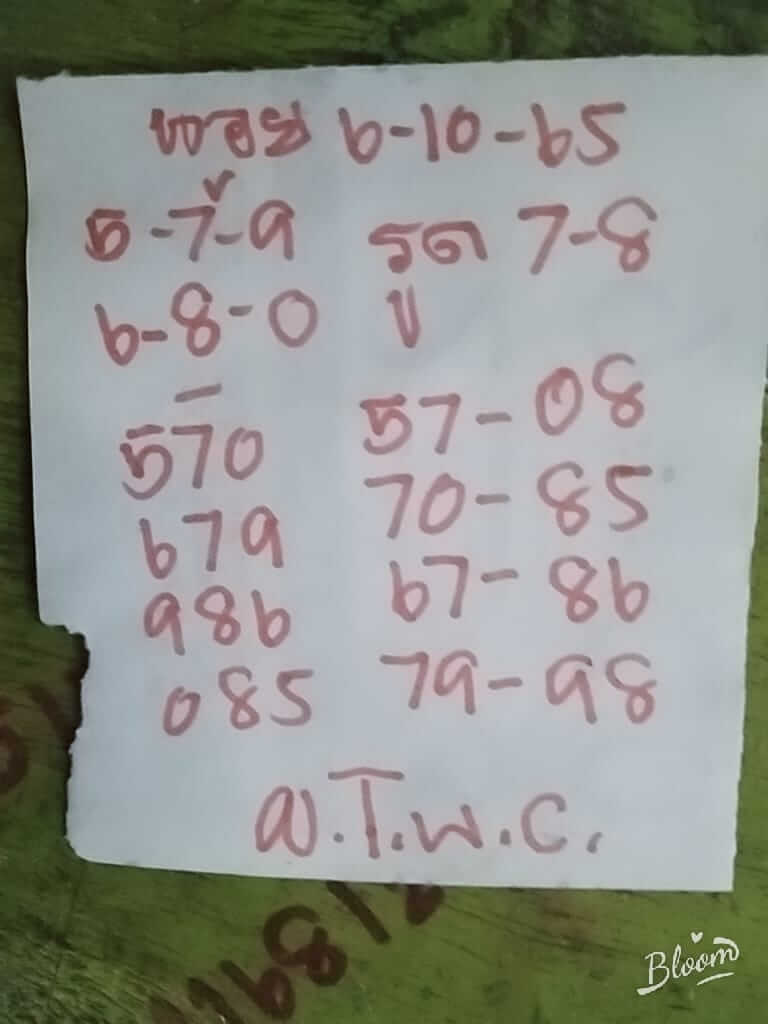 หวย 6-10-65
5-7-9 รูด 7-8
6-8-0
570 57-08
679 70-85
986 67-86
085 79-98
Bloom